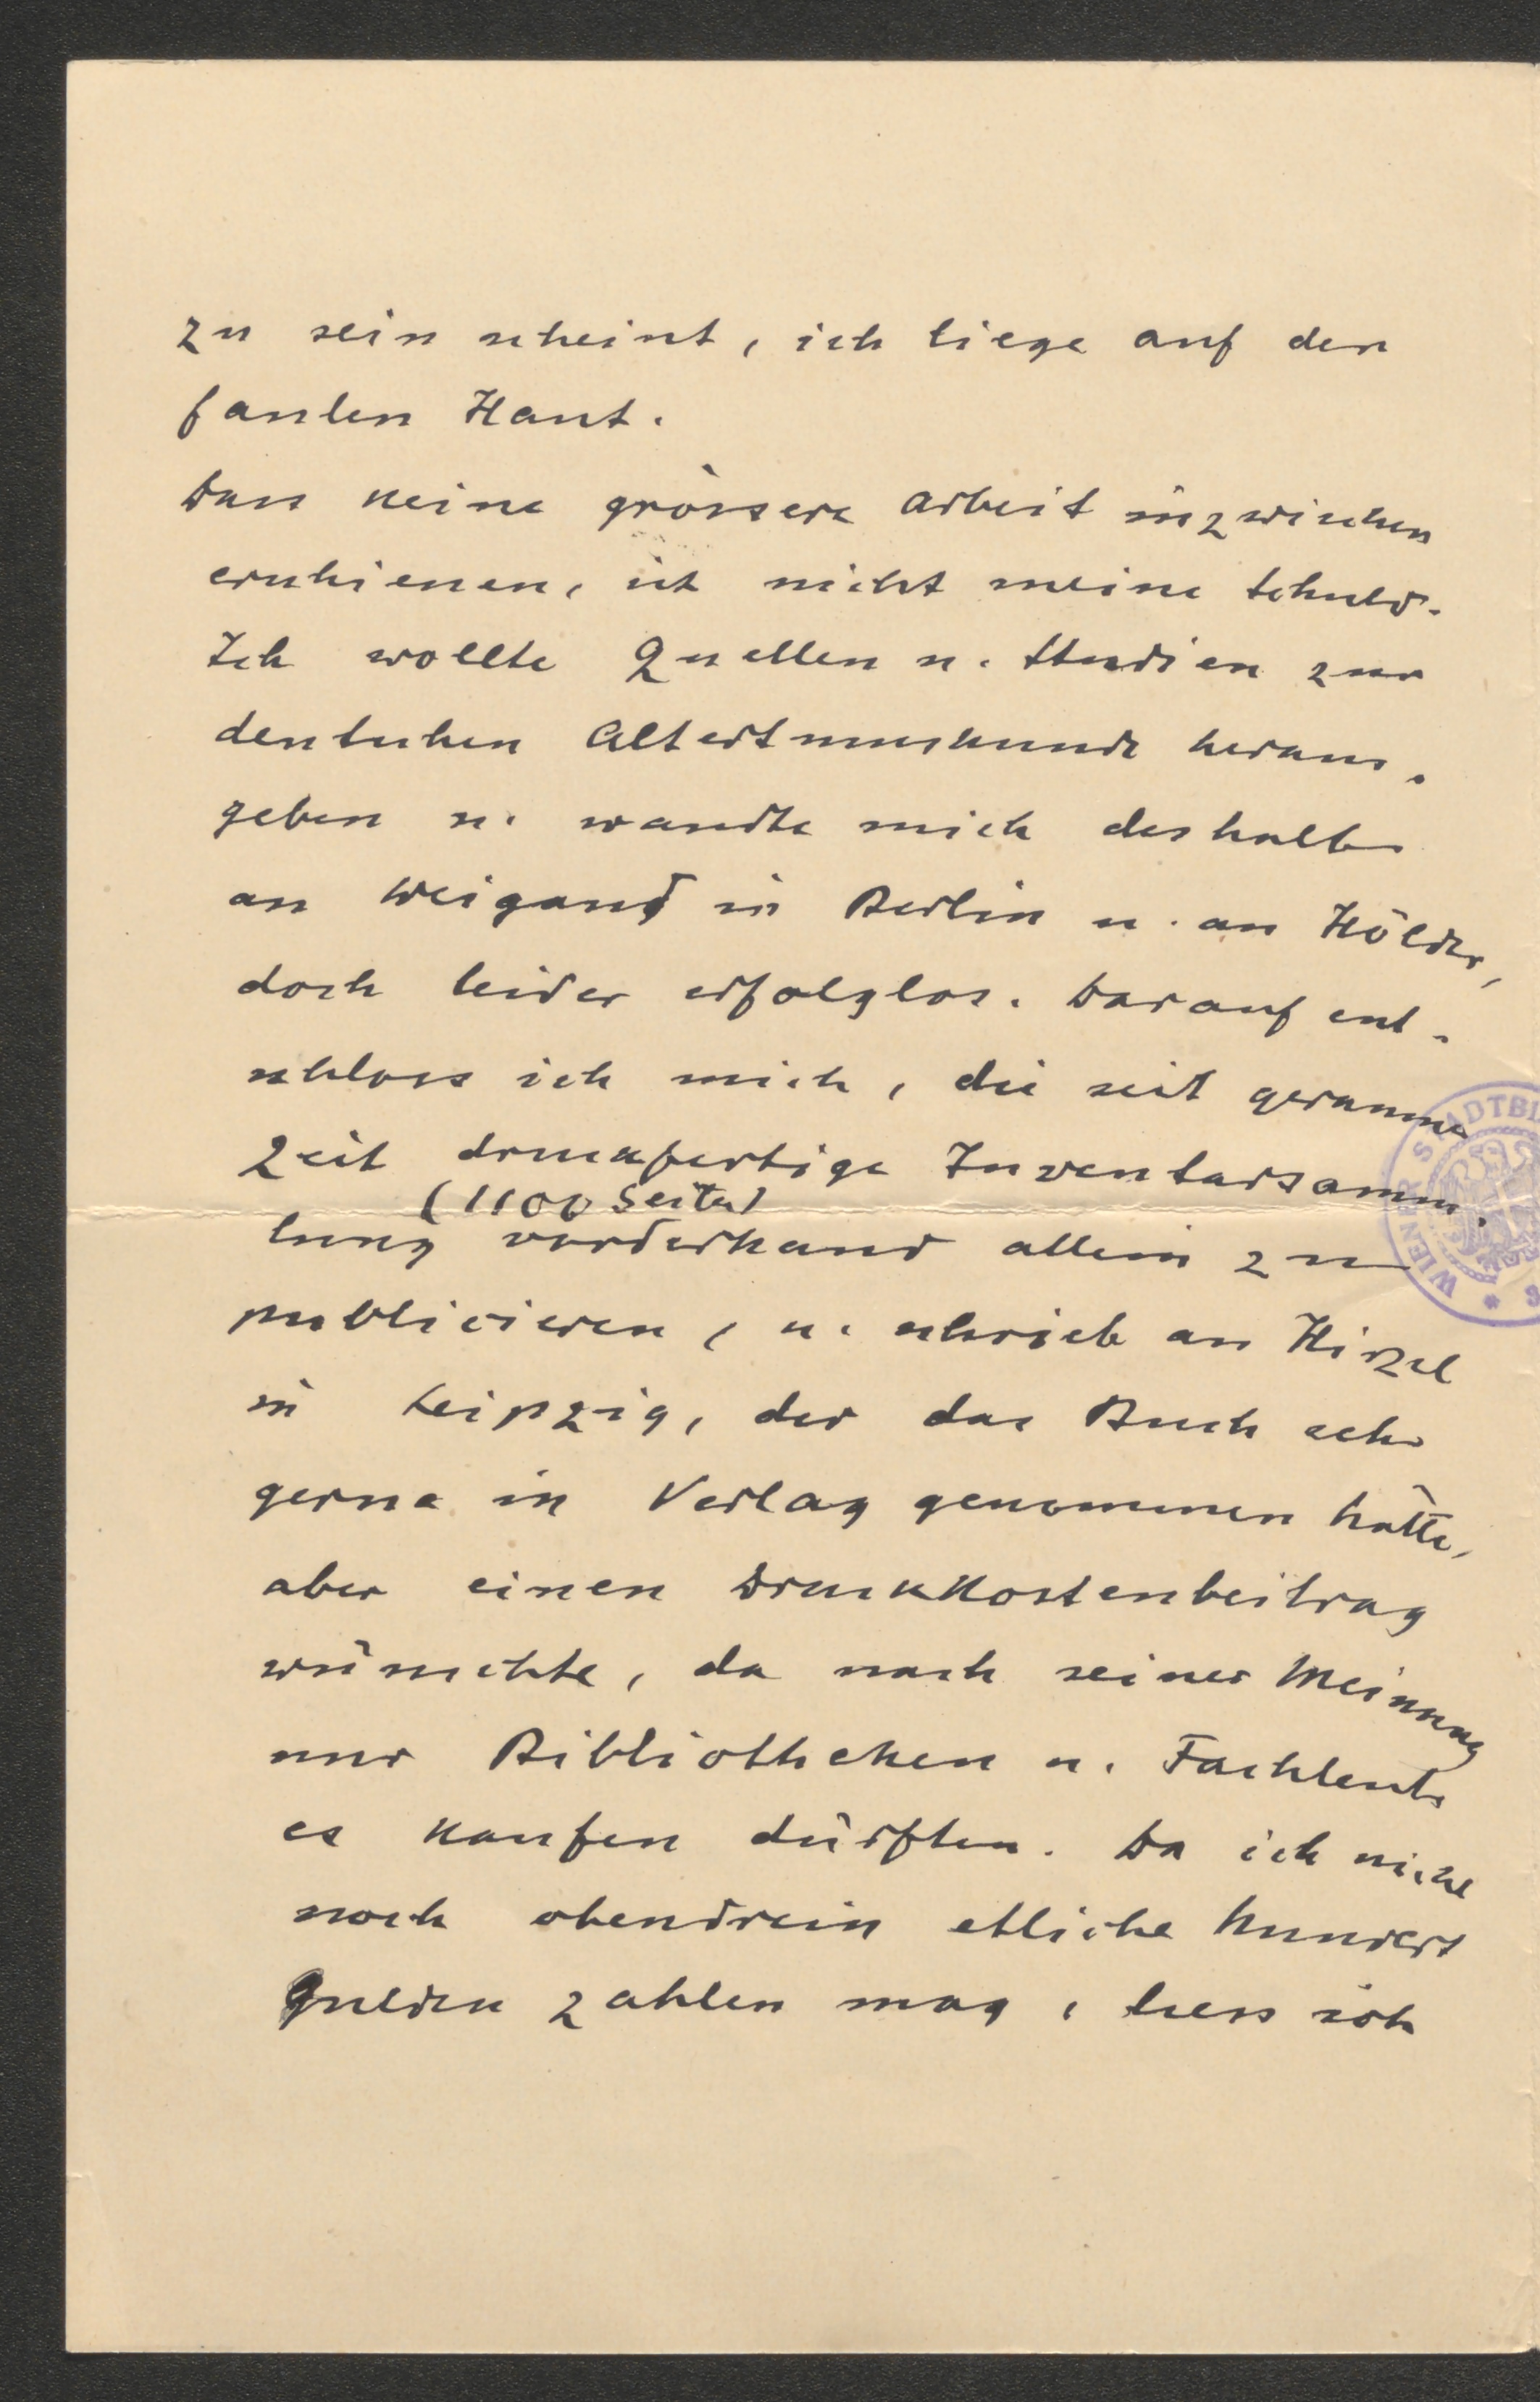 zu sein scheint, ich liege auf der
faulen Haut.
Dass keine grössere Arbeit inzwischen
erschienen, ist nicht meine Schuld.
Ich wollte Quellen u. Studien zur
deutschen Altertumskunde heraus-
geben u. wandte mich deshalb
an Weigand in Berlin u. an Hölder,
doch leider erfolglos. Darauf ent-
schloss ich mich, die seit geraumer
Zeit druckfertige Inventarsamm-
(1100 Seiten)
lung vorderhand allein zu
publicieren, u. schrieb an Hirzel
in Leipzig, der das Buch sehr
gerne in Verlag genommen hätte,
aber einen Druckkostenbeitrag
wünschte, da nach seiner Meinung
nur Bibliotheken u. Fachleute
es kaufen dürften. Da ich nicht
noch obendrein etliche hundert
Gulden zahlen mag, liess ich
WIENER STADTBI